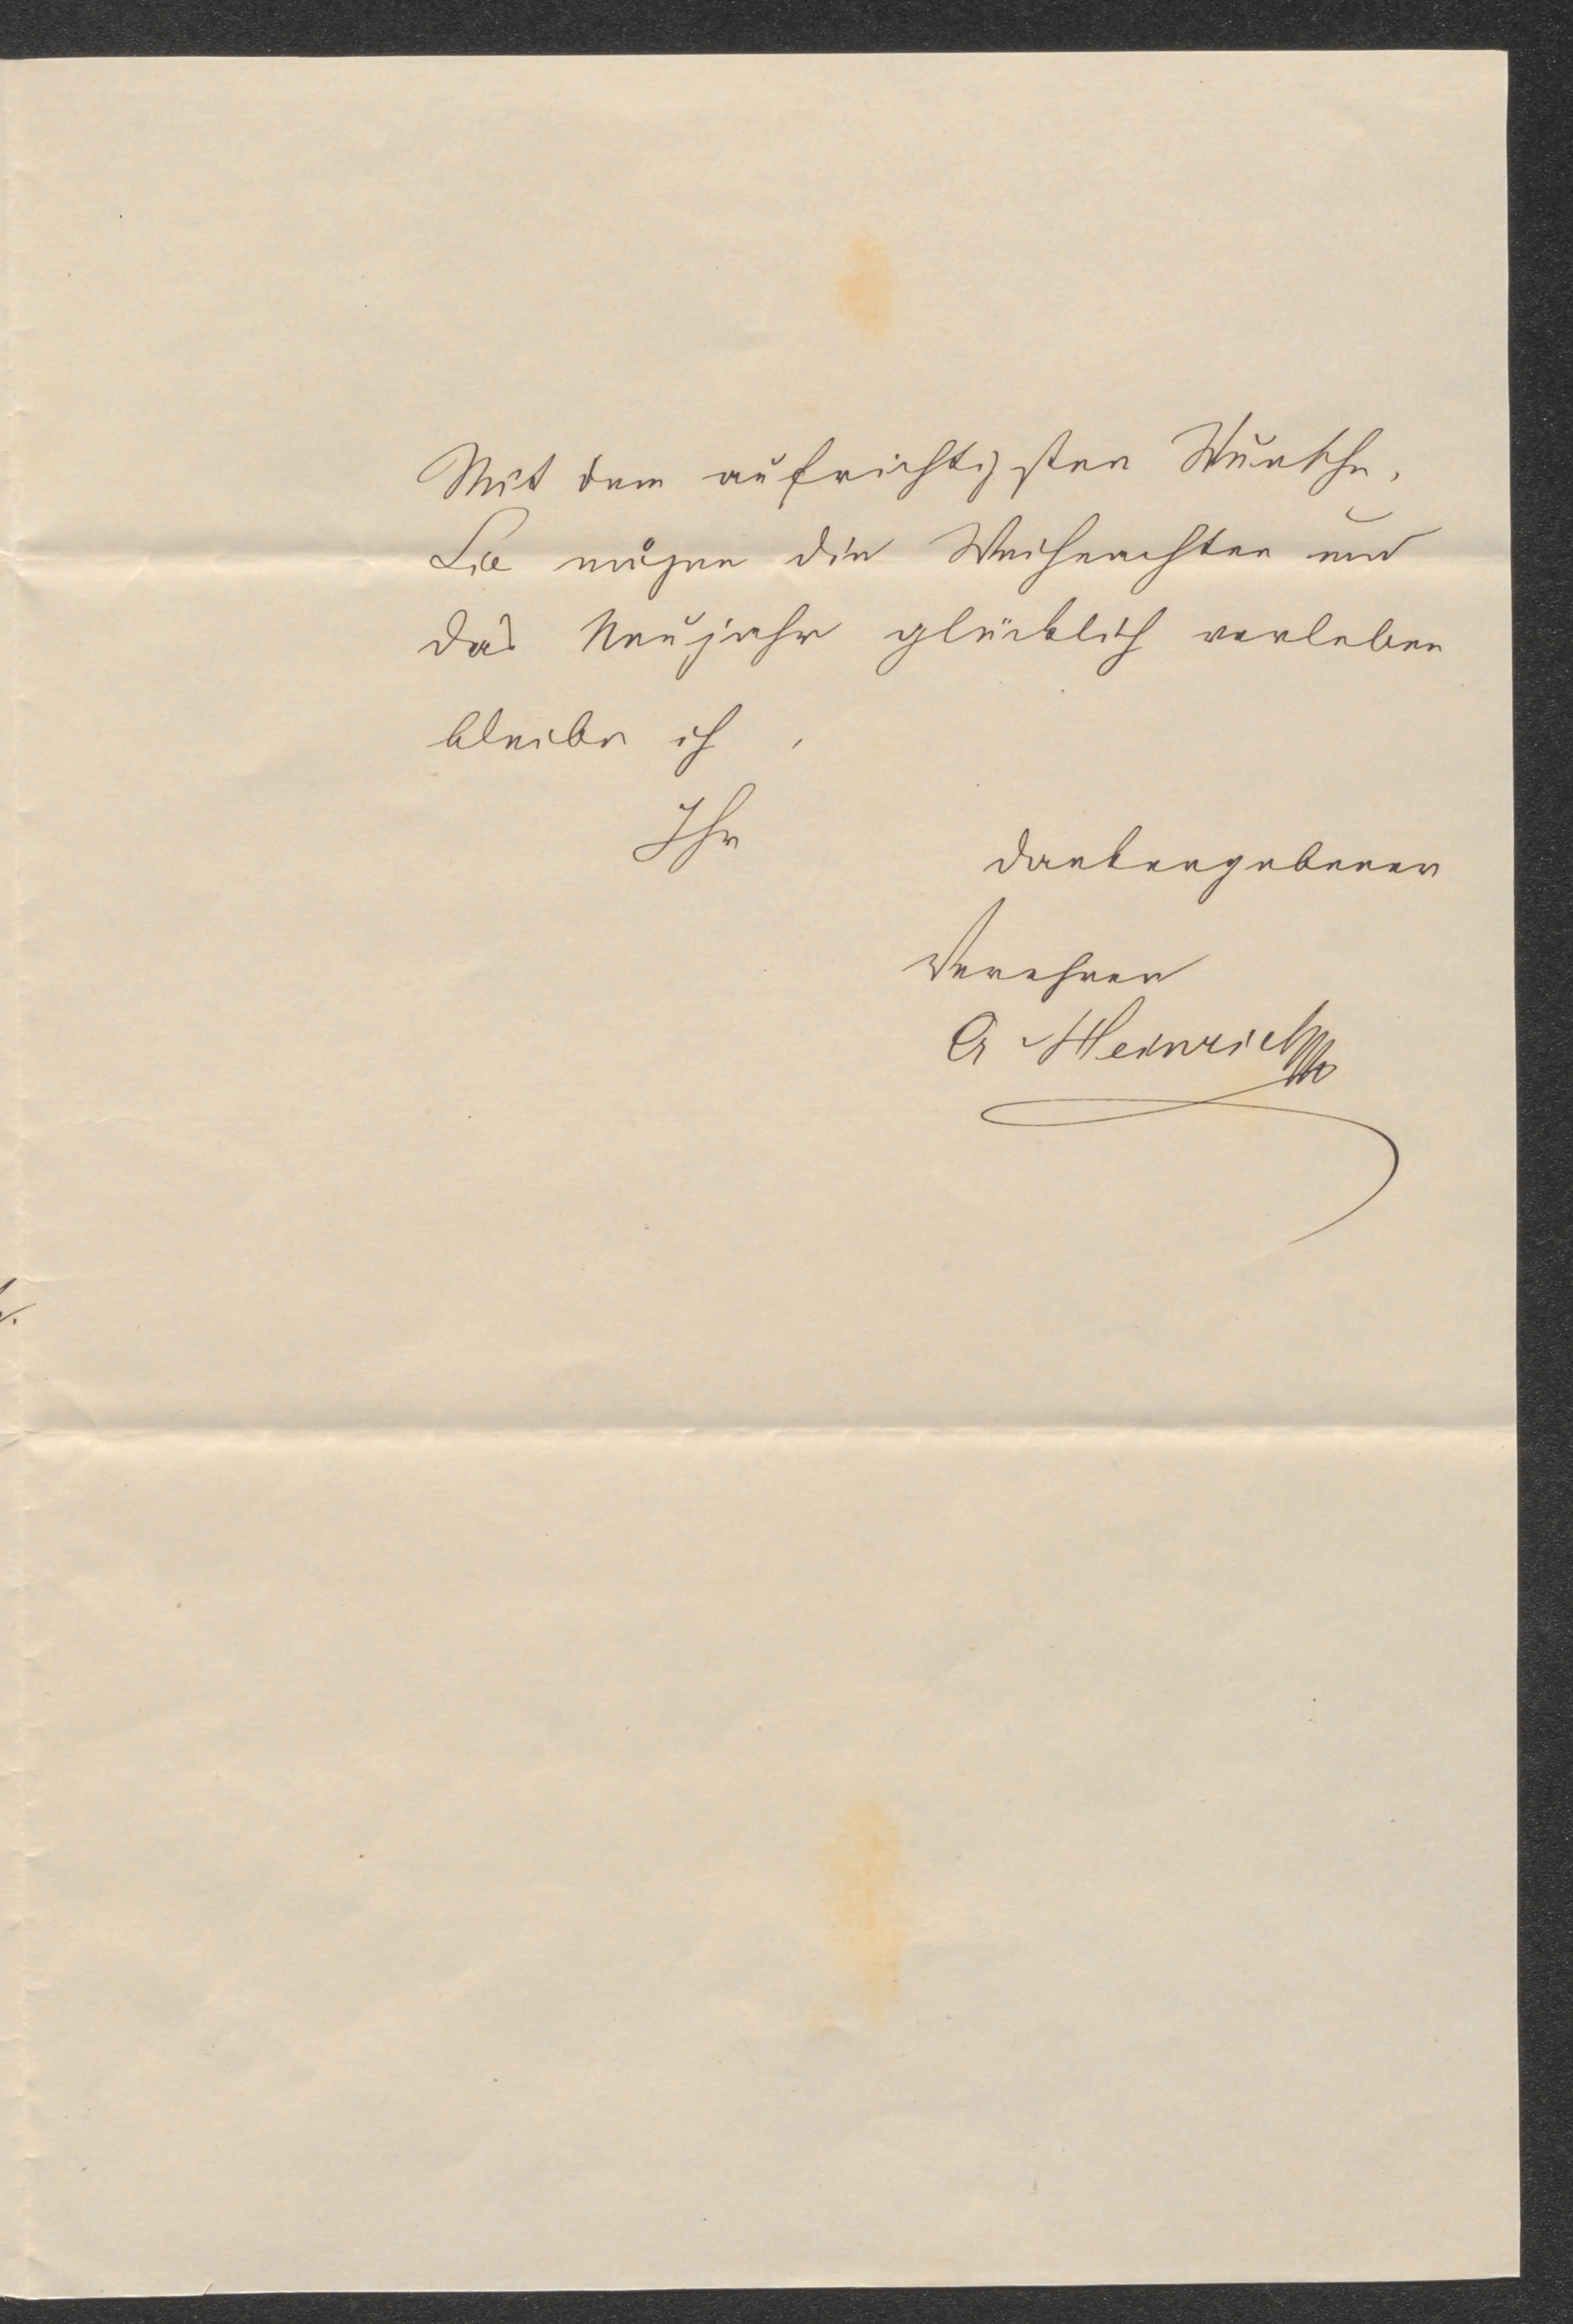 Mit dem aufrichtigsten Wunsche,
Sie mögen die Weihnachten und
das Neujahr glücklich verleben
bleibe ich,
Ihr
dankergebener
Verehrer
A Heinrich